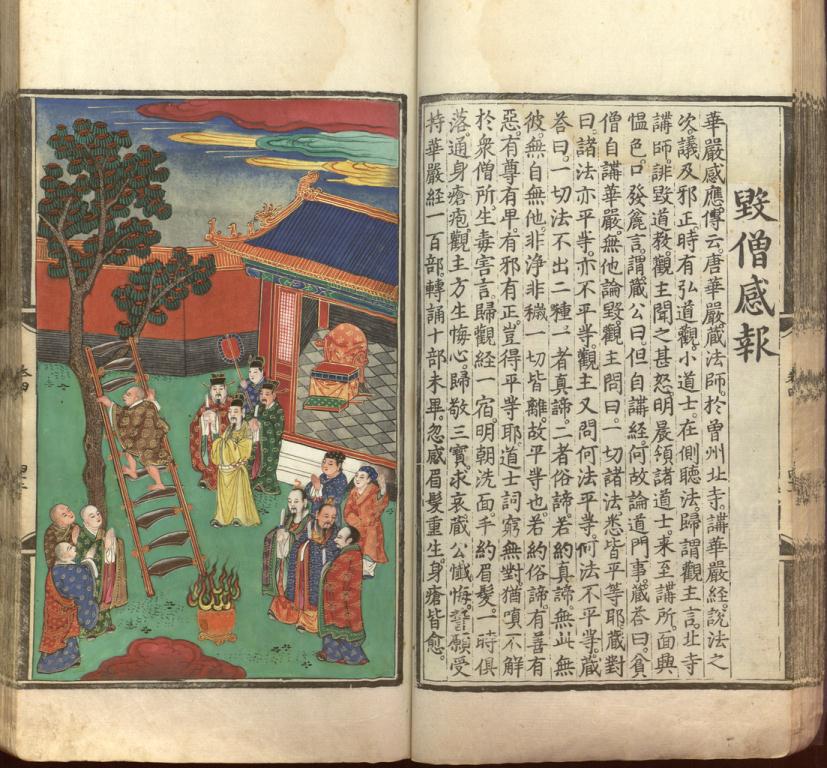 毀僧感報
華嚴感應傳云。唐華嚴藏法師。於曾州北寺。講華嚴經。說法之
次。議及邪正。時有弘道觀。小道士。在側聽法。歸謂觀主言。北寺
講師。誹毀道教。觀主聞之甚怒。明晨領諸道士。來至講所。面興
慍色。口發麁言。謂藏公曰。但自講經。何故論道門事。藏荅曰。貧
僧自講華嚴。無他論毀。觀主問曰。一切諸法。悉皆平等耶。藏對
曰。諸法亦平等。亦不平等。觀主又問。何法平等。何法不平等。藏
荅曰。一切法不出二種。一者真諦。二者俗諦。若約真諦。無此無
彼。無自無他。非淨非穢。一切皆離。故平等也。若約俗諦。有善有
惡。有尊有卑。有邪有正。豈得平等耶。道士詞窮無對。猶嗔不解
於衆僧所。生毒害言。歸觀經一宿。明朝洗面。手約眉髮。一時俱
落。通身瘡疱。觀主方生悔心。歸敬三寶。求哀藏公懺悔。誓願受
持華嚴經一百部。轉誦十部未畢。忽感眉髮重生。身瘡皆愈。